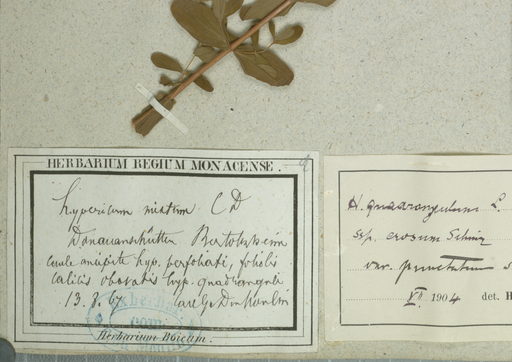 HERBARIUM REGIUM MONACENSE.
Hypericum mixtum C D
Donauanschütten Bertoldsheim
caule ancipite hyp. perforati, foliis
calicis obovatis hyp. quadranguli
13. 8. 67. Carl
Herbarium Boicum.
H. quadrangulum L.
ssp. erosum Schinz
var. punctatum
VII 1904 det. H